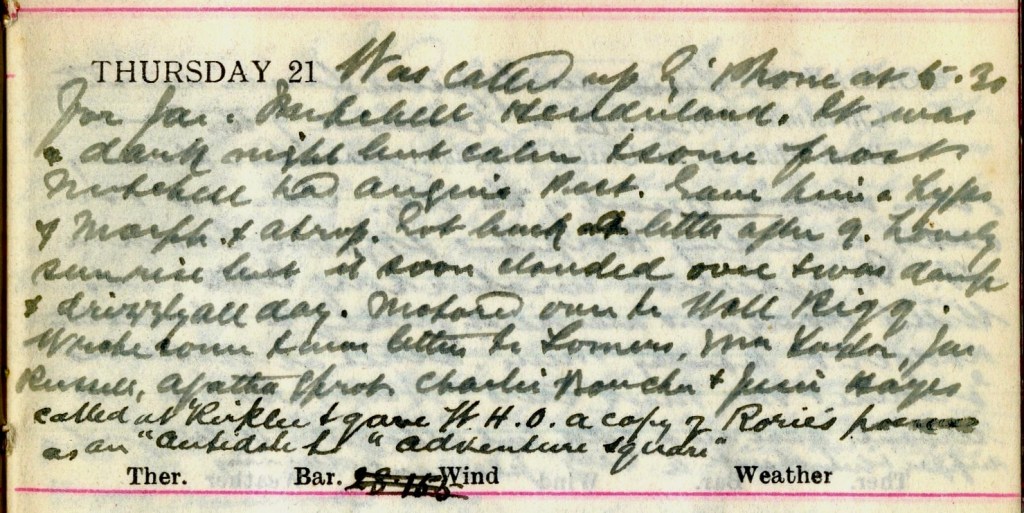 THURSDAY 21 Was called up by 'Phone at 5.30
for Jas. Mitchell Henderland. It was
a dark night but calm & some frost
Mitchell had angina Pect. Gave him a hypo
of Morph. & atrop. Got back a little after 9. Lovely
sunrise but it soon clouded over & was damp
& drizzly all day. Motored over to Well Rigg.
Wrote some letters to Somers, Mrs Jas
Russell, Agatha Sprot Charlie & Jessie Hayes
called at Kirklee & gave W.H.O. a copy of Rorie's poems
as an "antidote to" "adventure square"
Ther. Bar. 28.165 Wind Weather